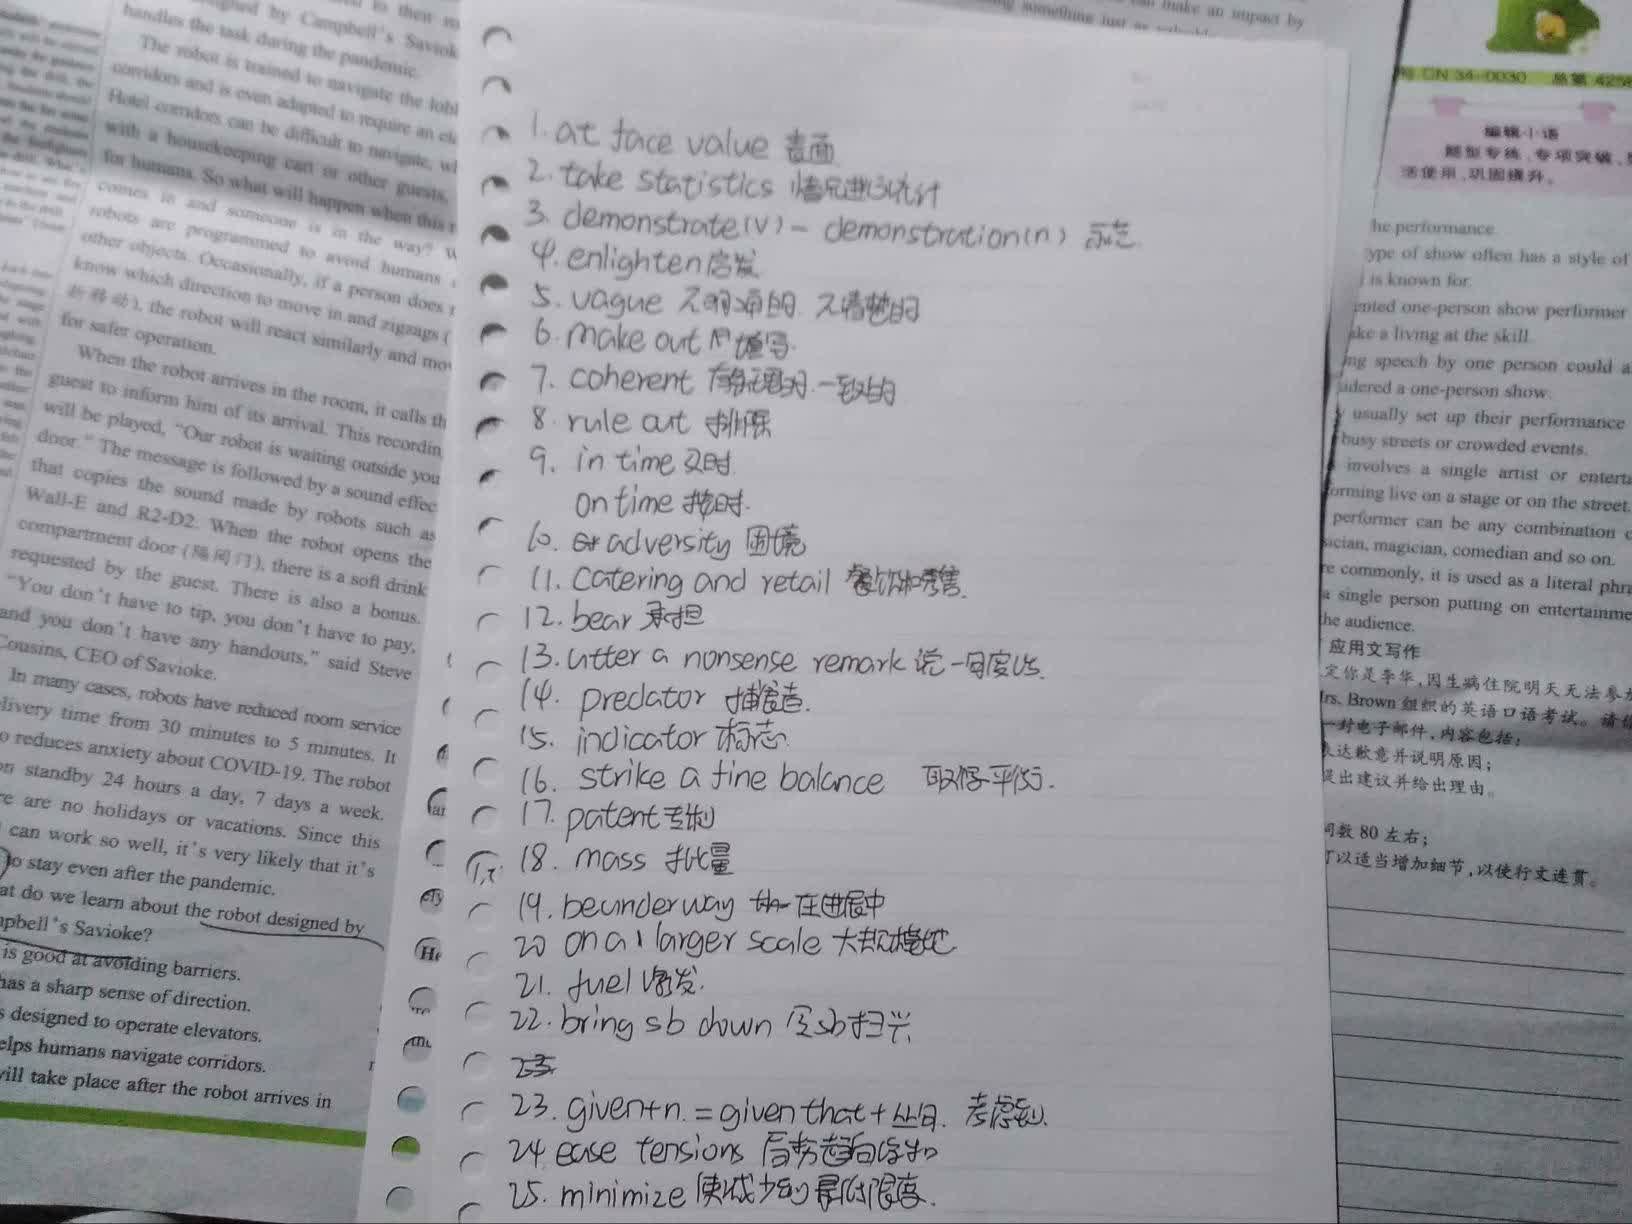 handles the task during the pandemic.
The robot is trained to navigate the lobb
corridors and is even adapted to require an ele
Hotel corridors can be difficult to navigate, wh
with a housekeeping cart or other guests,
for humans. So what will happen when this r
comes in and someone is in the way? W
robots are programmed to avoid humans
other objects. Occasionally, if a person does
know which direction to move in and zigzags (
折移动), the robot will react similarly and mov
for safer operation.
When the robot arrives in the room, it calls th
guest to inform him of its arrival. This recordin
will be played, "Our robot is waiting outside you
door." The message is followed by a sound effec
that copies the sound made by robots such as
Wall-E and R2-D2. When the robot opens the
compartment door (隔间门), there is a soft drink
requested by the guest. There is also a bonus.
"You don't have to tip, you don't have to pay,
and you don't have any handouts," said Steve
Cousins, CEO of Savioke.
In many cases, robots have reduced room service
elivery time from 30 minutes to 5 minutes. It
o reduces anxiety about COVID-19. The robot
on standby 24 hours a day, 7 days a week.
re are no holidays or vacations. Since this
can work so well, it's very likely that it's
to stay even after the pandemic.
at do we learn about the robot designed by
mpbell's Savioke?
is good at avoiding barriers.
has a sharp sense of direction.
s designed to operate elevators.
elps humans navigate corridors.
will take place after the robot arrives in
1. at face value 表面
2. take statistics 情况进行统计
3. demonstrate(v) - demonstration(n) 示范
4. enlighten 启发
5. vague 不明确的. 不清楚的
6. make out 填写.
7. coherent 有条理的. 一致的
8. rule out 排除
9. in time 及时.
on time 按时.
10. adversity 困境
11. Catering and retail 餐饮和零售.
12. bear 承担
13. utter a nonsense remark 说一句废话.
14. predator 捕猎者.
15. indicator 标志.
16. strike a fine balance 取得平衡.
17. patent 专利
18. mass 批量
19. beunderway 在进展中
20 on a larger scale 大规模地
21. fuel 激发.
22. bring sb down 令sb扫兴
23
23. given+n. = given that + 从句. 考虑到.
24 ease tensions 局势趋向缓和
25. minimize 使减少到最低限度.
CN 34-0030
编辑小语
题型专练、专项突破、
活使用,巩固提升。
he performance.
ype of show often has a style of
is known for.
ented one-person show performer
ake a living at the skill.
ng speech by one person could a
idered a one-person show.
y usually set up their performance
busy streets or crowded events.
involves a single artist or enterta
orming live on a stage or on the street.
performer can be any combination o
ician, magician, comedian and so on.
re commonly, it is used as a literal phra
a single person putting on entertainme
the audience.
应用文写作
定你是李华,因生病住院明天无法参加
Mrs. Brown 组织的英语口语考试。请你
一封电子邮件,内容包括:
表达歉意并说明原因;
提出建议并给出理由。
词数 80 左右;
可以适当增加细节,以使行文连贯。